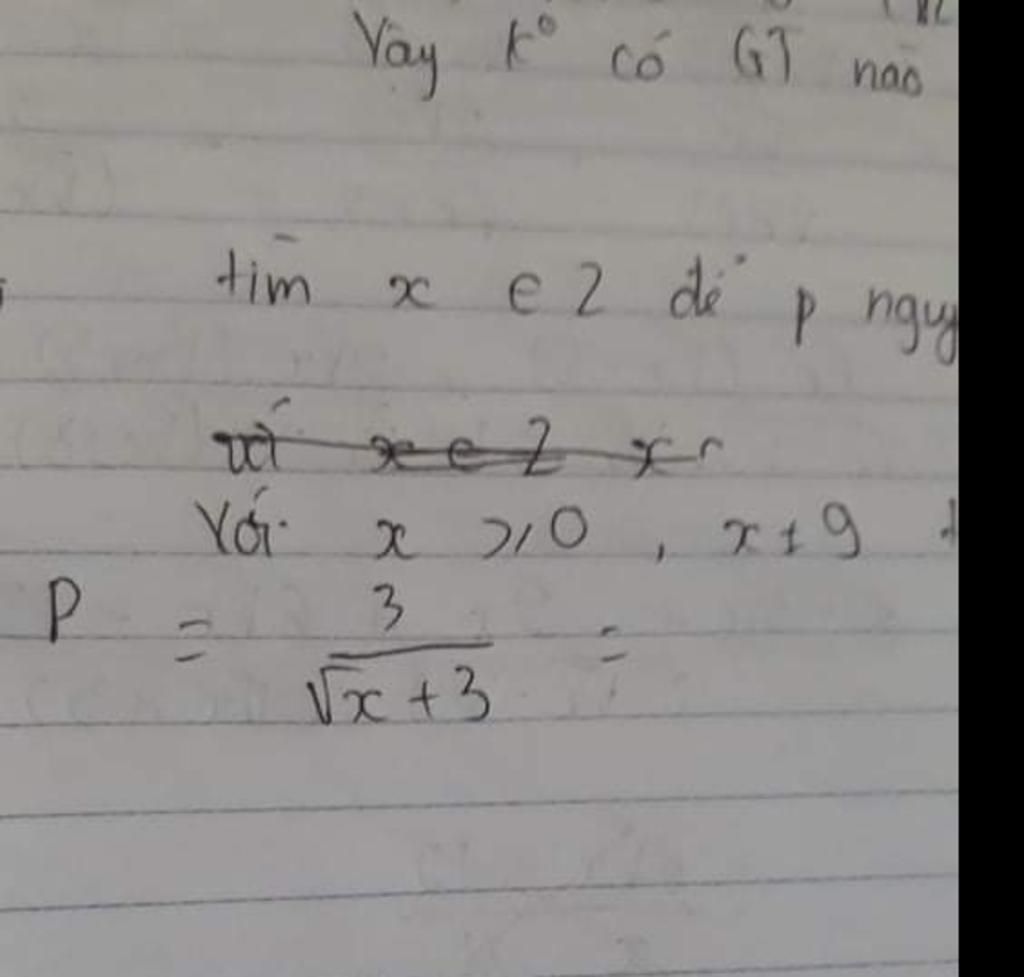 Vậy k° có GT nào
tìm x ∈ Z để p nguy
với x ∈ Z x
Với x ⩾ 0 , x ≠ 9
P = 3/(√x + 3) =